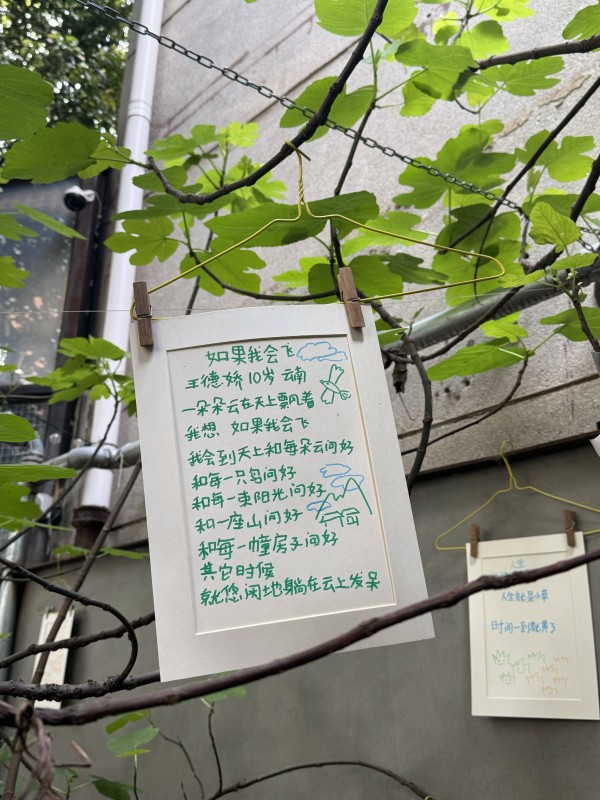 如果我会飞
王德娇 10岁 云南
一朵朵云在天上飘着
我想 如果我会飞
我会到天上和每朵云问好
和每一只鸟问好
和每一束阳光问好
和一座山问好
和每一幢房子问好
其它时候
就悠闲地躺在云上发呆
人生
人生就是小草
时间一到就黄了